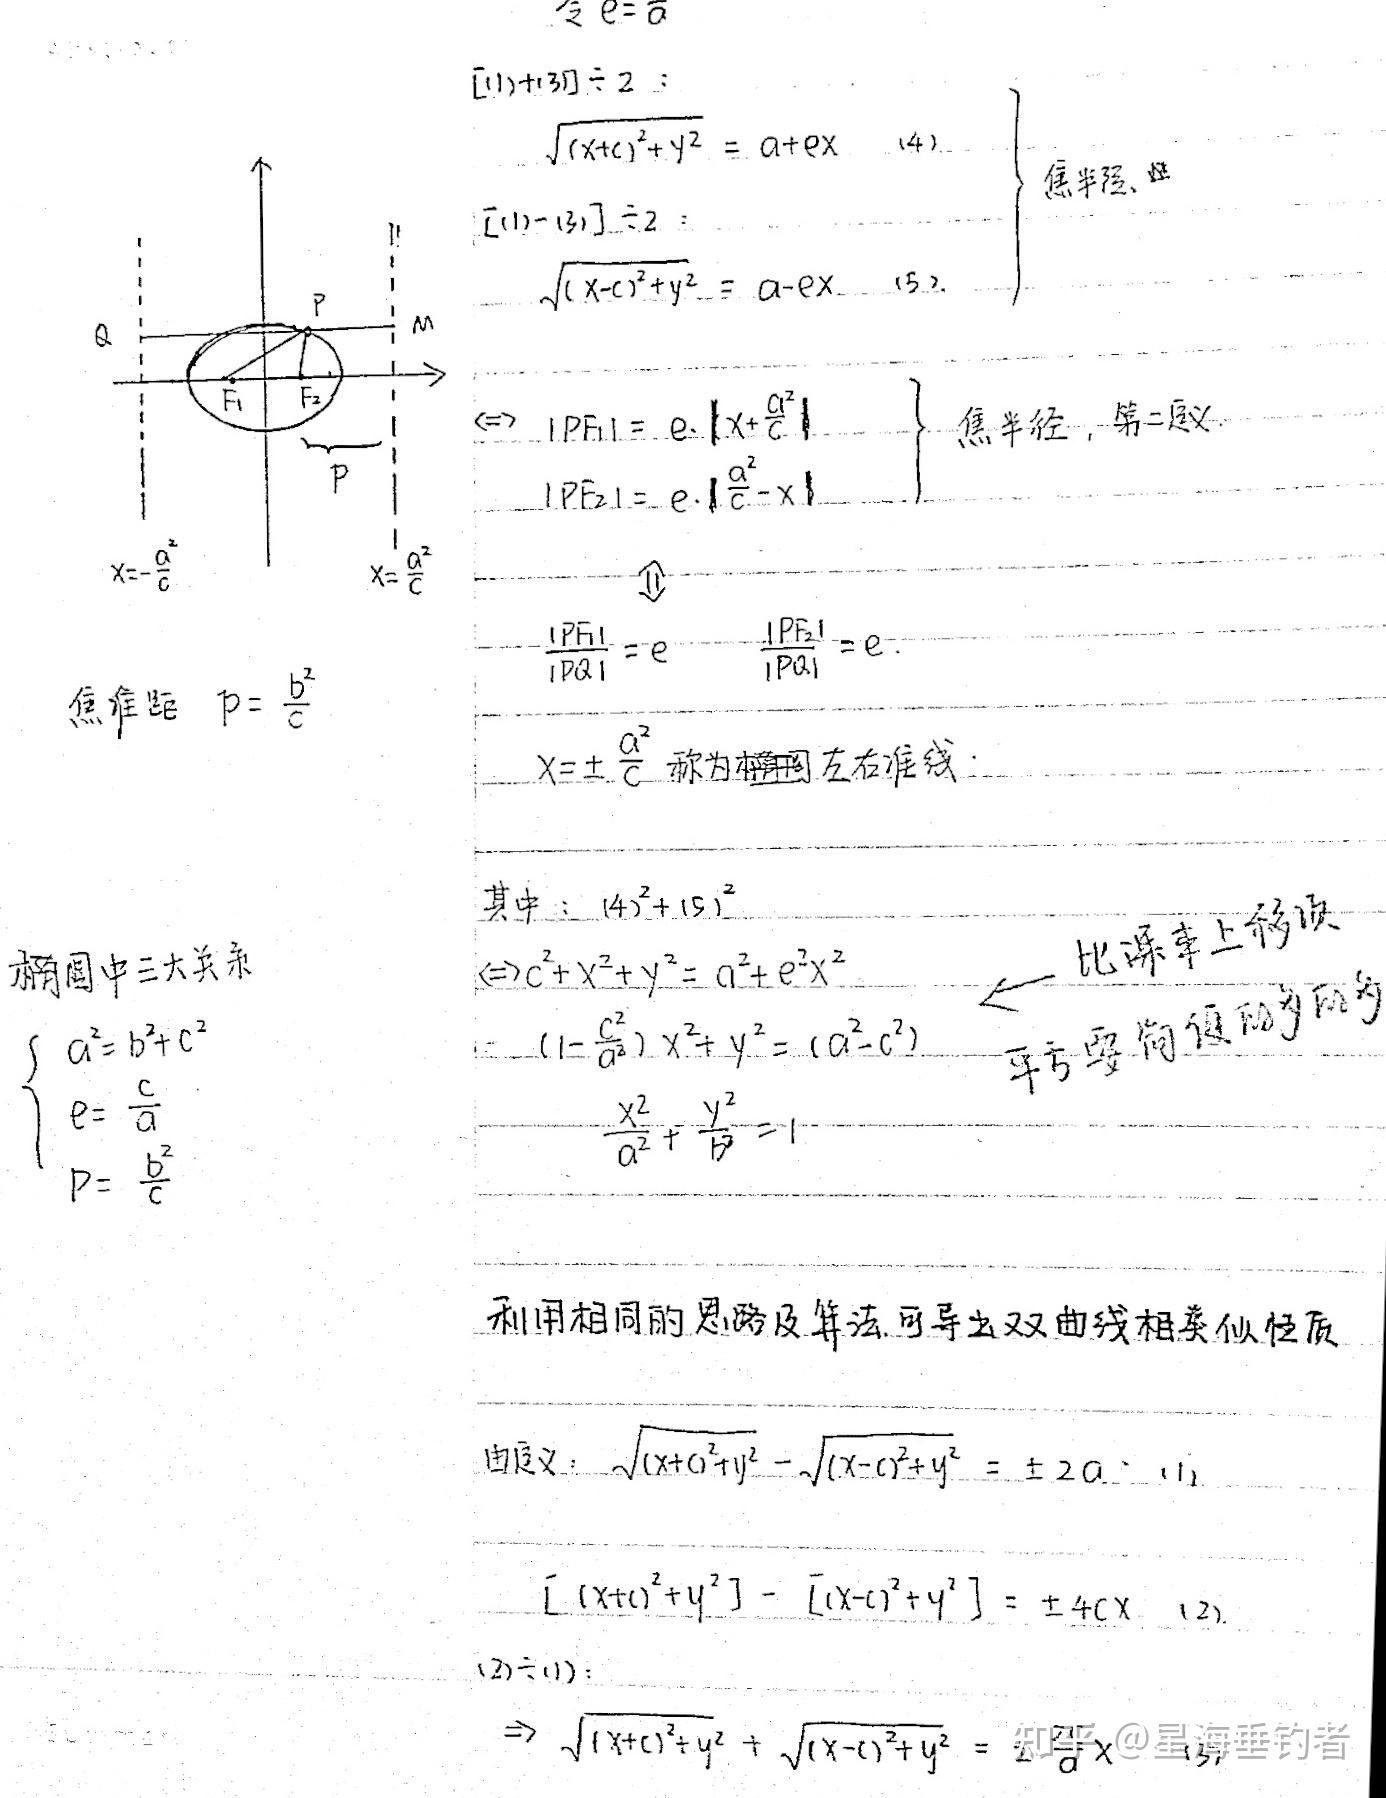 令 e=
a
[(1)+(3)]÷2 :
√((x+c)²+y²) = a+ex (4)
[(1)-(3)]÷2 :
√((x-c)²+y²) = a-ex (5).
焦半径、
Q P M
F₁ F₂
p
x=-a²/c x=a²/c
⇔ |PF₁| = e·|x+a²/c|
|PF₂| = e·|a²/c-x|
焦半径，第二定义.
⇕
|PF₁|/|PQ| = e |PF₂|/|PQ| = e.
焦准距 p= b²/c
x=± a²/c 称为椭圆左右准线.
其中: (4)²+(5)²
⇔ c²+x²+y² = a²+e²x²
(1-c²/a²) x²+y² = (a²-c²)
x²/a² + y²/b² = 1
← 比课本上移项
平方要简便的多的多
椭圆中三大关系
{ a²=b²+c²
e= c/a
p= b²/c
利用相同的思路及算法.可导出双曲线相类似性质
由定义: √((x+c)²+y²) - √((x-c)²+y²) = ±2a. (1)
[(x+c)²+y²] - [(x-c)²+y²] = ±4cx (2).
(2)÷(1):
⇒ √((x+c)²+y²) + √((x-c)²+y²) = ± /a x (3)
知乎 @星海垂钓者